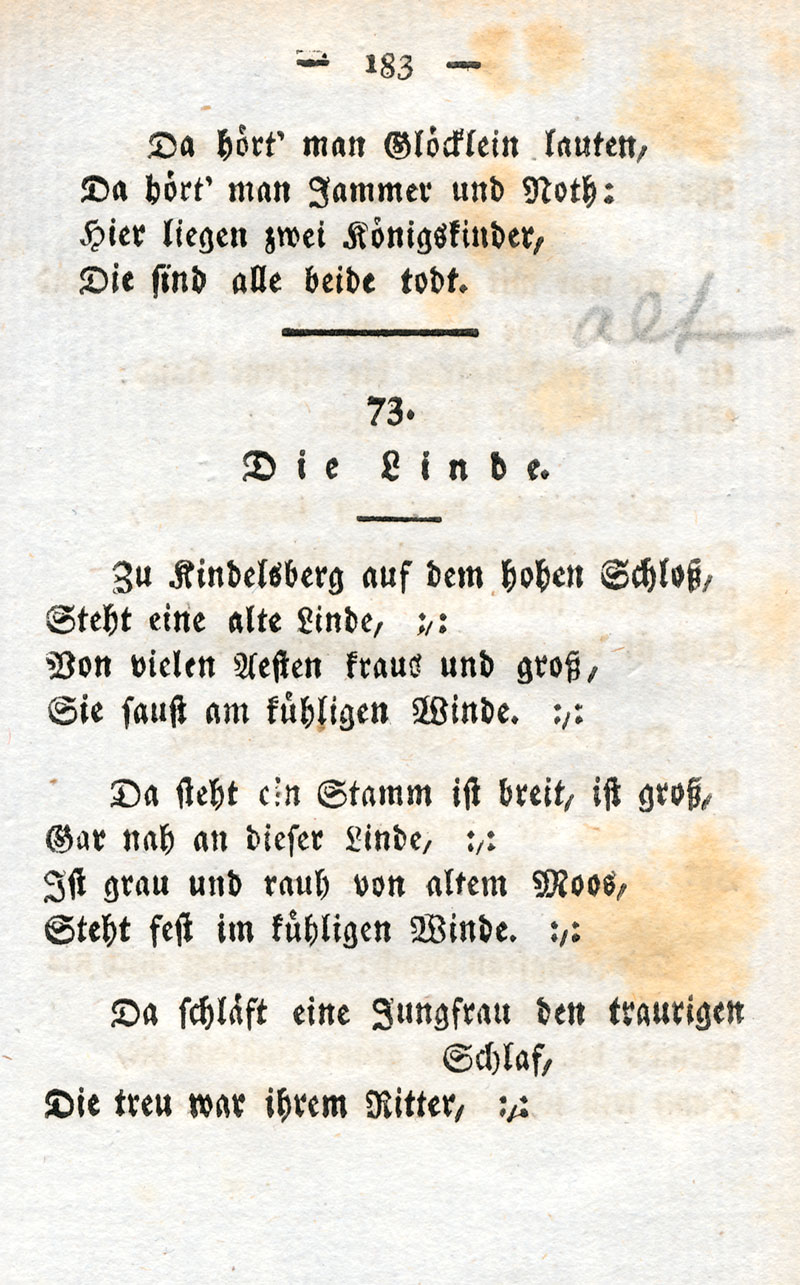 — 183 —
Da hört' man Glöcklein lauten,
Da hört' man Jammer und Noth:
Hier liegen zwei Königskinder,
Die sind alle beide todt.
alt
73.
Die Linde.
Zu Kindelsberg auf dem hohen Schloß,
Steht eine alte Linde, :,:
Von vielen Aesten kraus und groß,
Sie saust am kühligen Winde. :,:
Da steht ein Stamm ist breit, ist groß,
Gar nah an dieser Linde, :,:
Ist grau und rauh von altem Moos,
Steht fest im kühligen Winde. :,:
Da schläft eine Jungfrau den traurigen
Schlaf,
Die treu war ihrem Ritter, :,: